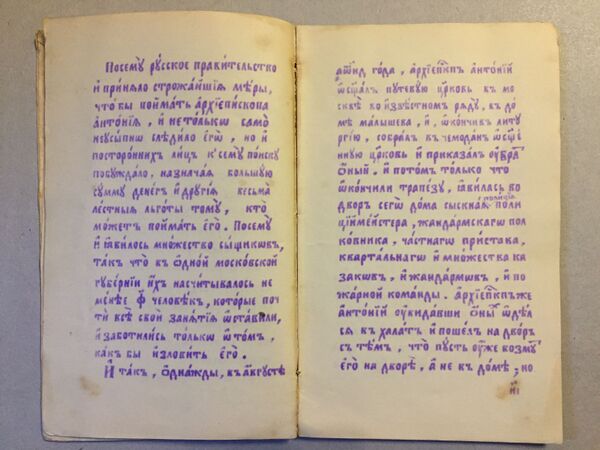 Посемꙋ̀ рꙋ́сское правительство
и҆ приняло строжа́йшїѧ мѣ́ры,
что́ бы пойма́ть а҆рхїепископа
а҆нтѡ́нїѧ, и҆ нетолькѡ само
неꙋсыпнѡ слѣдило є҆гѡ̀, но и҆
посторо́нних лицъ к̾ семꙋ̀ поискꙋ
побꙋжда́ло, назнача́ѧ большꙋю
сꙋммꙋ де́нег и҆ дрꙋгі́ѧ весьма̀
ле́стныѧ льготы томꙋ̀, кто̀
мо́жетъ пойма́ть є҆го̀. Посемꙋ̀
и҆ ꙗ҆вилось мно́жество сы́щикѡвъ,
та́къ что въ ѻ҆дной моско́вской
гꙋбе́рнїи и҆́хъ насчи́тывалось не
ме́нѣе ф҃ человѣ́къ, кото́рые поч
ти всѣ̀ своѝ занѧ́тїѧ ѡ҆ста́вили,
и҆ забо́тились то́лькѡ ѡ҆ то́мъ,
ка́къ бы и҆зловить є҆го̀.
И҆ та́къ, ѻ҆дна́жды, въ а҆́вгꙋстѣ
го́да, а҆рхїепⷭ҇кпъ а҆нто́нїй
ѡ҆сщ҃а́лъ пꙋтевꙋю цр҃ковь въ мо
сквѣ̀ во и҆звѣ́стном рѧдꙋ̀, въ до́
мѣ ма́лышева, и҆, ѡ҆кѡ́нчивъ литꙋ
ргі́ю, собра́лъ въ чемода́н ѡ҆сщ҃е́
ннꙋю цр҃ковь и҆ приказа́лъ
и҆ пото́мъ то́лько что
ѡ҆ко́нчили тра́пезꙋ, ꙗ҆вилась во
дворъ сегѡ̀ до́ма сыскна́ѧ поли́цїѧ поли
ці́ймейстера, жанда́рмскагѡ пол
ко́вника, ча́стнагѡ при́става,
кварта́льнагѡ и҆ мно́жества ка
закѡ́въ, и҆ жанда́рмѡвъ, и҆ по
жа́рной кома́нды. А҆рхїепⷭ҇кпъ же
а҆нто́нїй ᲂу҆ви́давши ѻ҆́ны ѡ҆дѣ́л
сѧ въ хала́тъ и҆ поше́лъ на дво́ръ
с тѣ́мъ, что̀ пꙋсть ᲂу҆́же возмꙋ́т
є҆го̀ на дворѣ̀, а҆ не въ до́мѣ, но
и҆і